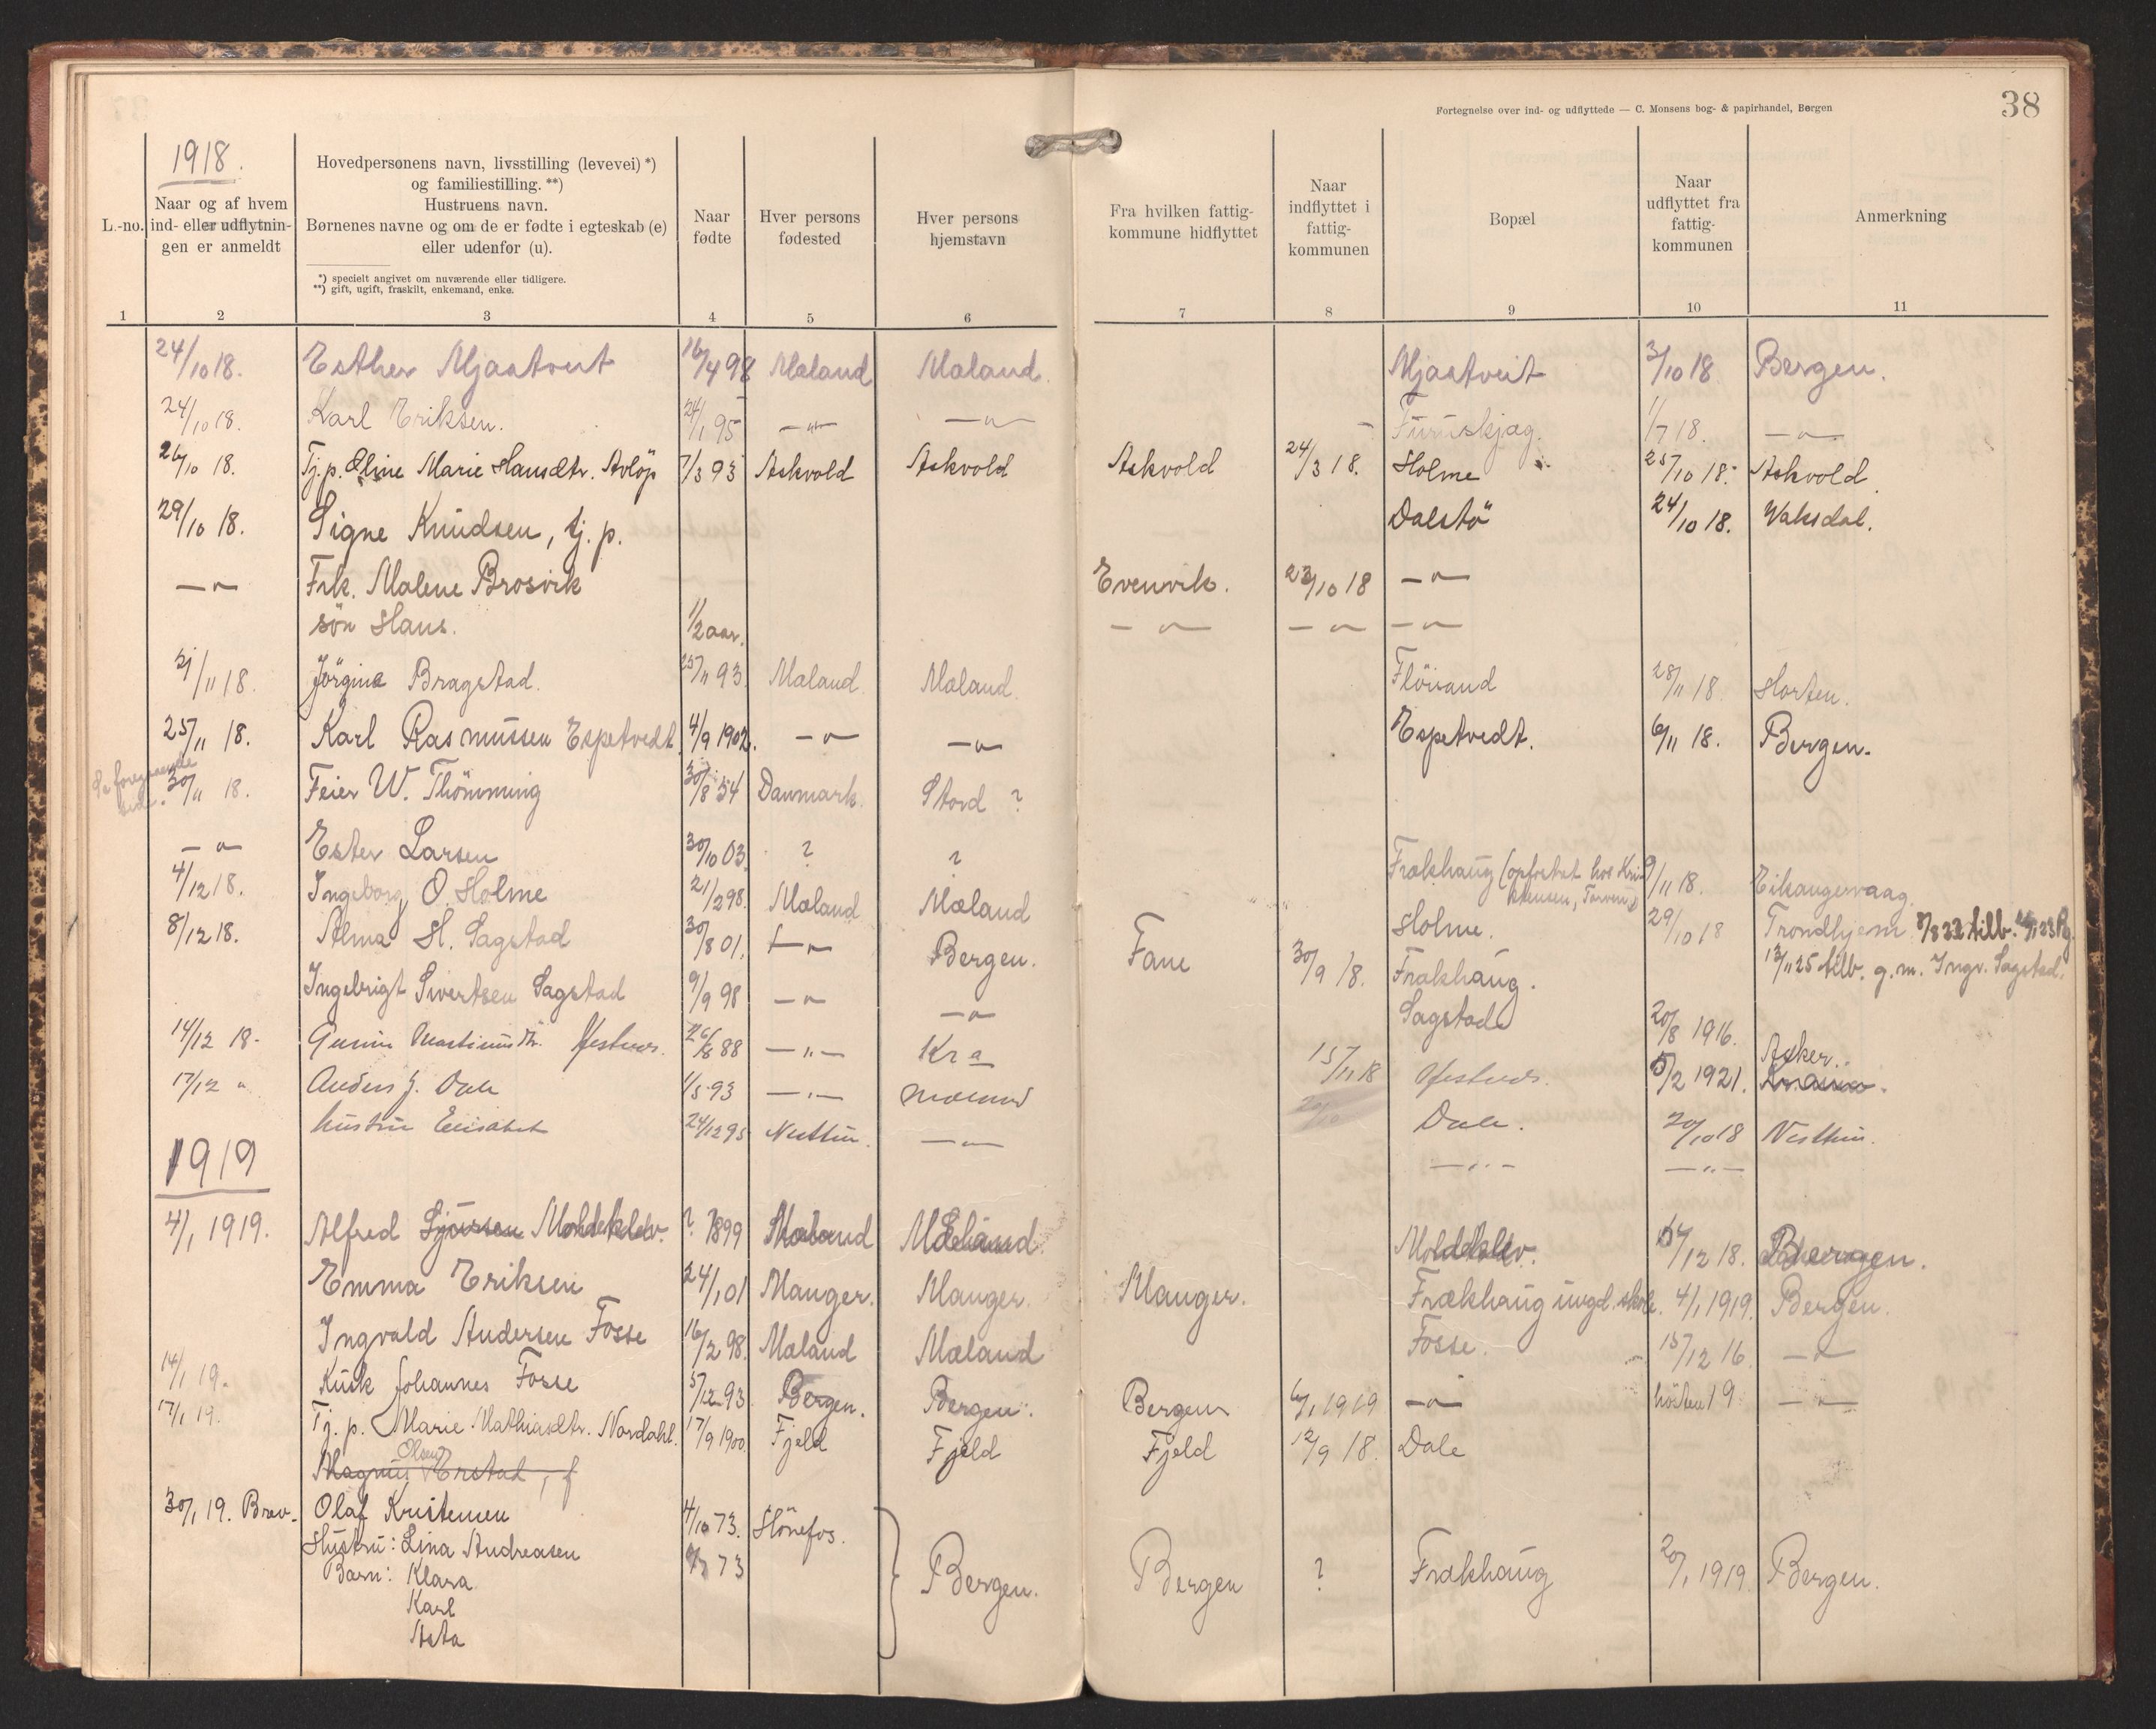 Fortegnelse over ind- og udflyttede — C. Monsens bog- & papirhandel, Bergen
38
1918.
L.-no.
Naar og af hvem
ind- eller udflytnin-
gen er anmeldt
Hovedpersonens navn, livsstilling (levevei) *)
og familiestilling. **)
Hustruens navn.
Børnenes navne og om de er fødte i egteskab (e)
eller udenfor (u).
*) specielt angivet om nuværende eller tidligere.
**) gift, ugift, fraskilt, enkemand, enke.
Naar
fødte
Hver persons
fødested
Hver persons
hjemstavn
Fra hvilken fattig-
kommune hidflyttet
Naar
indflyttet i
fattig-
kommunen
Bopæl
Naar
udflyttet fra
fattig-
kommunen
Anmerkning
1 2 3 4 5 6 7 8 9 10 11
24/10 18. Esther Mjaatveit 16/4 98 Mæland Mæland. Mjaatveit 3/10 18 Bergen.
24/10 18. Karl Eriksen. 24/1 95 —„— —„— 1/7 18. —„—
26/10 18. Tj.p. Oline Marie Hansdtr. Avlöp 7/3 93 Askvold Askvold Askvold 24/3 18. Holme 25/10 18. Askvold.
29/10 18. Signe Knudsen, tj. p. Dalstö 24/10 18. Vaksdal.
—„— Frk. Malene Brosvik Evenvik. 23/10 18 —„—
sön Hans. 1/2 aar. —„— —„— —„—
/11 18. Jörgine Bragstad. 25/11 93. Mæland Mæland. Flöisand 28/11 18. Horten.
25/11 18. Karl Rasmussen Espetvedt 4/9 1902. —„— —„— Espetvedt. 6/11 18. Bergen.
Se foregaaende
side.
30/11 18. Feier W. Thömming 30/8 54 Danmark Stord ?
—„— Ester Larsen 30/10 03. ? ? Frækhaug (opfostret hos Kri
stensen, ) 9/11 18. Eikangervaag.
4/12 18. Ingeborg O. Holme 21/2 98. Mæland Mæland Holme. 29/10 18 Trondhjem
8/12 18. Alma H. Sagstad 30/8 01. —„— Bergen. Fane 30/9 18. Frækhaug. 13/11 25 tilb. g. m. Ingv. Sagstad.
Ingebrigt Sivertsen Sagstad 9/9 98 —„— —„— Sagstad 20/8 1916.
14/12 18. 88 —„— Kra 15/11 18 5/2 1921. Asker.
17/12 „ Anders J. Dale 1/5 93 —„— Mæland Dale. 20/10 18 Nesttun.
hustru Elisabet 24/12 95 Nesttun. —„— —„— —„—
1919
4/1 1919. Alfred Moldeklev. ? 1899 Mæland Mæland. Moldeklev. /12 18. Bergen.
Emma Eriksen 24/1 01 Manger. Manger. Manger. Frækhaug ungd. skole. 4/1 1919. Bergen.
Ingvald Andersen Fosse 16/2 98. Mæland Mæland Fosse. 15/12 16. —„—
14/1 19. Kusk Johannes Fosse 5/12 93 Bergen. Bergen. Bergen 6/1 1919 —„— hösten 19 —„—
17/1 19. Tj. p. Marie Mathiasdtr. Nordahl. 17/9 1900. Fjeld Fjeld Fjeld 12/9 18. Dale
Olsen
Magnus Erstad, f
30/1 19. Brev. Olaf Kristensen 4/10 73. Hönefos.
Hustru: Lina Andreasen 73
Barn: Klara Bergen. Bergen ? Frækhaug 20/1 1919 Bergen.
Karl
Asta